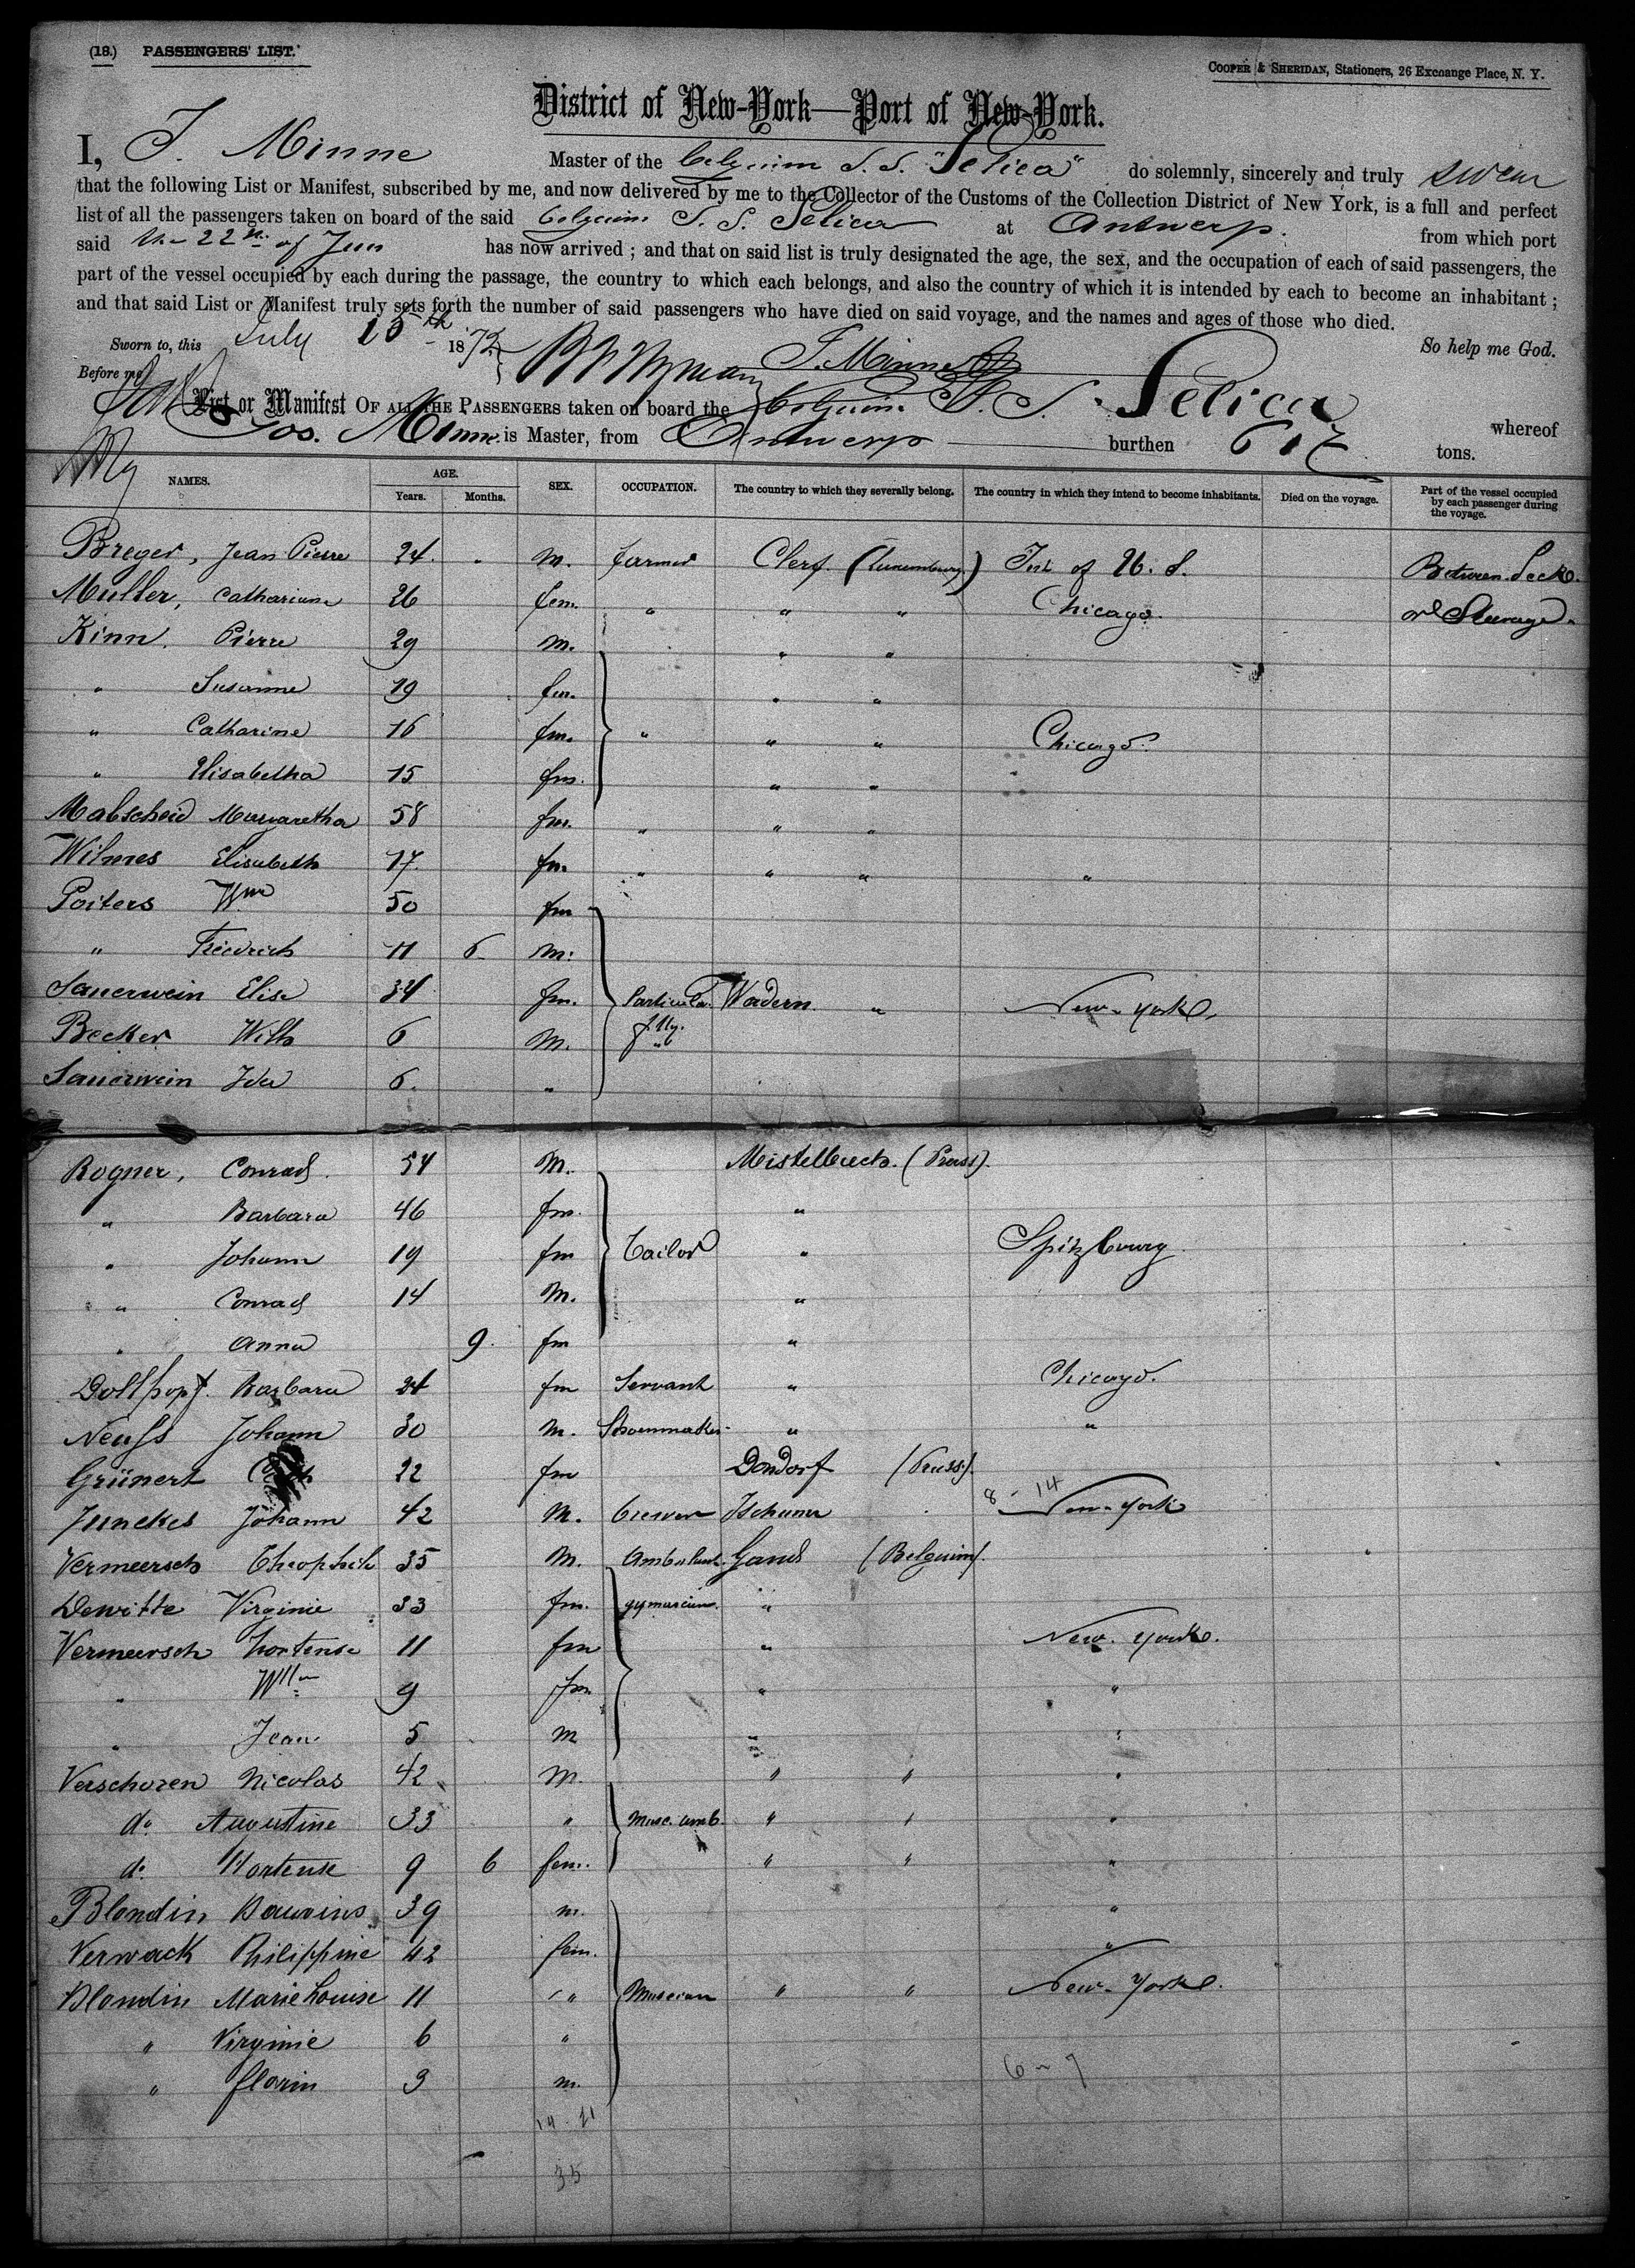 (18.) PASSENGERS' LIST.
COOPER & SHERIDAN, Stationers, 26 Exchange Place, N. Y.
District of New-York—Port of New-York.
I, J. Minne Master of the Belgium S. S. "Selica" do solemnly, sincerely and truly swear
that the following List or Manifest, subscribed by me, and now delivered by me to the Collector of the Customs of the Collection District of New York, is a full and perfect
list of all the passengers taken on board of the said Belgium S. S. Selica at Antwerp. from which port
said the 22n of Jun has now arrived ; and that on said list is truly designated the age, the sex, and the occupation of each of said passengers, the
part of the vessel occupied by each during the passage, the country to which each belongs, and also the country of which it is intended by each to become an inhabitant ;
and that said List or Manifest truly sets forth the number of said passengers who have died on said voyage, and the names and ages of those who died.
Sworn to, this July 15th 1872 J. Minne So help me God.
Before me
List or Manifest OF ALL THE PASSENGERS taken on board the Belgium S. S. Selica whereof
Jos. Minne is Master, from Antwerp burthen 617 tons.
NAMES. AGE. Years. Months. SEX. OCCUPATION. The country to which they severally belong. The country in which they intend to become inhabitants. Died on the voyage. Part of the vessel occupied by each passenger during the voyage.
Breger, Jean Pierre 24. " M. farmer Clerf. (Luxemburg) Int of U. S. Between Deck.
Muller, Catharina 26 fem. " " " Chicago. or Steerage.
Kinn. Pierre 29 M. " "
" Susanne 19 fm. " "
" Catharine 16 fm. " " " Chicago.
" Elisabetha 15 fm. " " "
Mabscheid Margaretha 58 fm. " " "
Wilmes Elisabeth 17. fm. " " " "
Poiters Wm 50 fm
" Friedrich 11 6 M.
Sauerwein Elise 34 fm. Particular Wadern. " New-York.
Becker Wilh 6 M.
Sauerwein Ida 6. "
Rogner, Conrad. 54 M. Mistelbach. (Pruss).
" Barbara 46 fm. "
" Johann 19 fm Tailor " Spitzburg.
" Conrad 14 M. "
" Anna 9. fm "
Dollhopf. Barbara 24 fm Servant " Chicago.
Neuss Johann 30 M. Shoemaker " "
Grünert 22 fm Dondorf (Pruss).
Junckes Johann 42 M. brewer 8 - 14 New-York
Vermeersch Theophile 35 M. Ambulant Gand (Belguim).
Dewitte Virginie 33 fm. "
Vermeersch hortense 11 fm " New-York.
" Wllm 9 fm. " "
" Jean 5 M " "
Verschoren Nicolas 42 M. " " "
do Augustine 33 " Musc. amb. " " "
do Hortense 9 6 fem. " " "
Blondin 39 m. "
Verwack Philippine 42 fem. "
Blondin Marie Louise 11 " Musician " " New-York.
" Virginie 6 "
" florin 3 m. 6 - 7
14 - 21
35